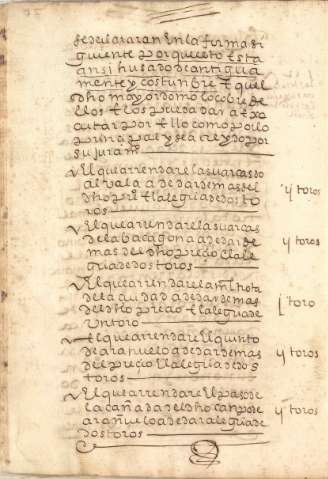 se declararan en la forma si
guiente porque esto esta
ansi husado de antigua
mente y costunbre q̃ quel
dho mayordomo lo cobre de
llos e los pueda dar a exe
cutar por ello como por lo
prinçipal y sea creydo por
su juram
El que arrendare las uarcas do
al uala a de dar demas del
dho pr el alegria de dos to
ros
ij toros
El que arrendare las uarcas
de la bacagona a de dar de
mas del dho preçio el ale
gria de dos toros
ij toros
El que arrendare la
de la çiudad a de dar demas
del dho preçio el alegria de
un toro
j toro
El que arrendare el quinto
de aranuelo a de dar demas
del preçio el alegria de dos
toros
ij toros
El que arrendare el paso de
la cañada del dho canpo de
arañuelo a de dar alegria de
dos toros
ij toros